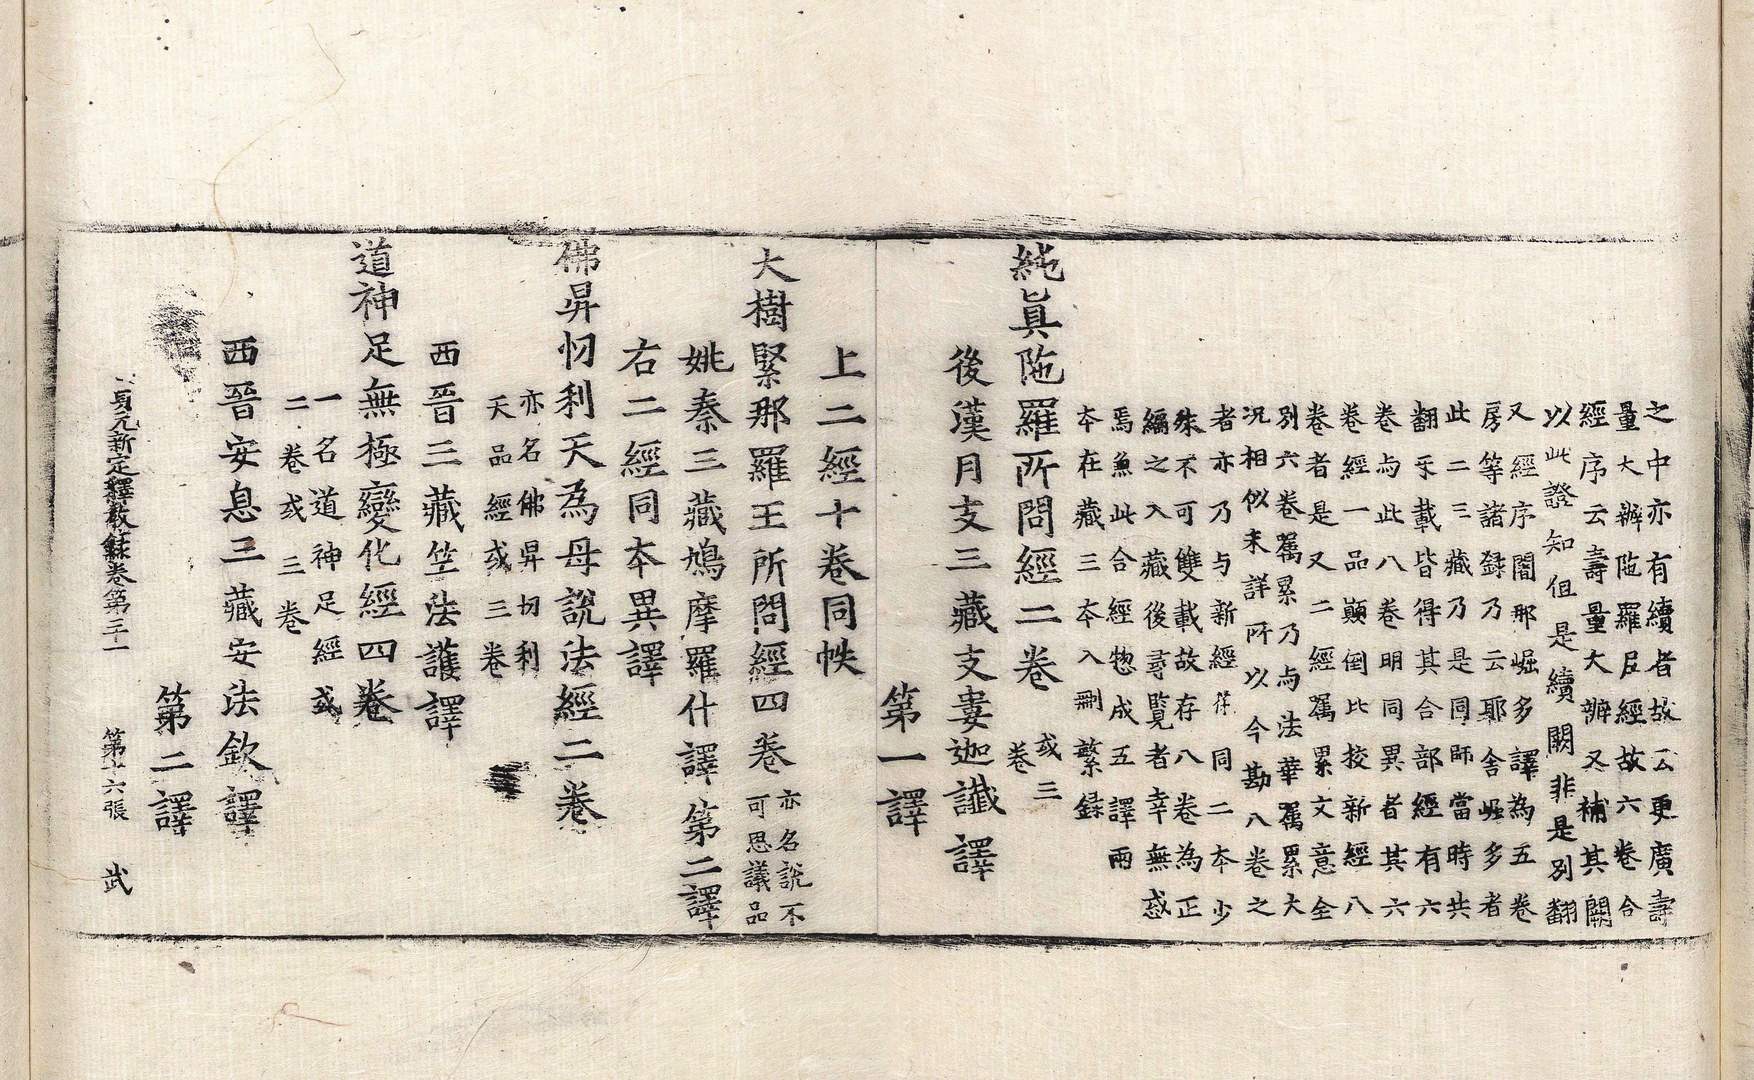 之中亦有續者故云更廣壽
量大辯陁羅尼經故六卷合
經序云壽量大辯又補其闕
以此證知但是續闕非是別翻
又經序闍那崛多譯為五卷
房等諸録乃云耶舍崛多者
此二三藏乃是同師當時共
翻乐載皆得其合部經有六
卷与此八卷明同異者其六
卷經一品顛倒比挍新經八
卷者是又二經属累文意全
別六卷属累乃与法華属累大
況相似未詳所以今勘八卷之
者亦乃与新經符同二本少
殊不可雙載故存八卷為正
編之入藏後尋覧者幸無惑
焉兼此合經惣成五譯兩
本在藏三本入刪繁録
純眞陁羅所問經二卷
或三
卷
後漢月支三藏支婁迦讖譯
第一譯
上二經十卷同帙
大樹緊那羅王所問經四卷
亦名說不
可思議品
姚秦三藏鳩摩羅什譯第二譯
右二經同本異譯
佛昇忉利天為母說法經二卷
亦名佛昇忉利
天品經或三卷
西晉三藏竺法護譯
道神足無極變化經四卷
一名道神足經或
二卷或三卷
西晉安息三藏安法欽譯
第二譯
貞元新定釋教錄卷第三十一
第十六張
武